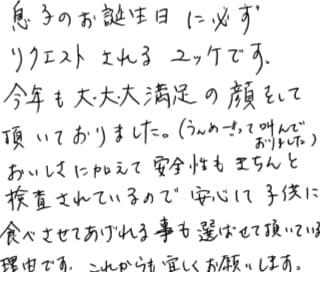 息子のお誕生日に必ず
リクエストされるユッケです。
今年も大・大・大満足の顔をして
頂いておりました。(うんめーっって叫んで
おりました)
おいしさに加えて安全性もきちんと
検査されているので安心して子供に
食べさせてあげれる事も選ばせて頂いている
理由です。これからも宜しくお願いします。